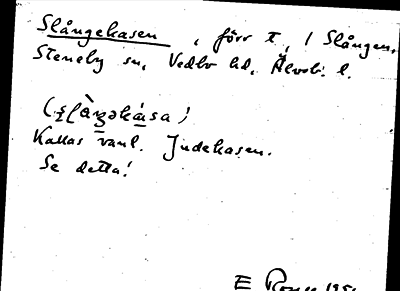 Slångekasen, förr t, / Slången,
Steneby sn, Vedbo hd, Älvsb. l.
Kallas vanl. Judekasen.
Se detta!
E